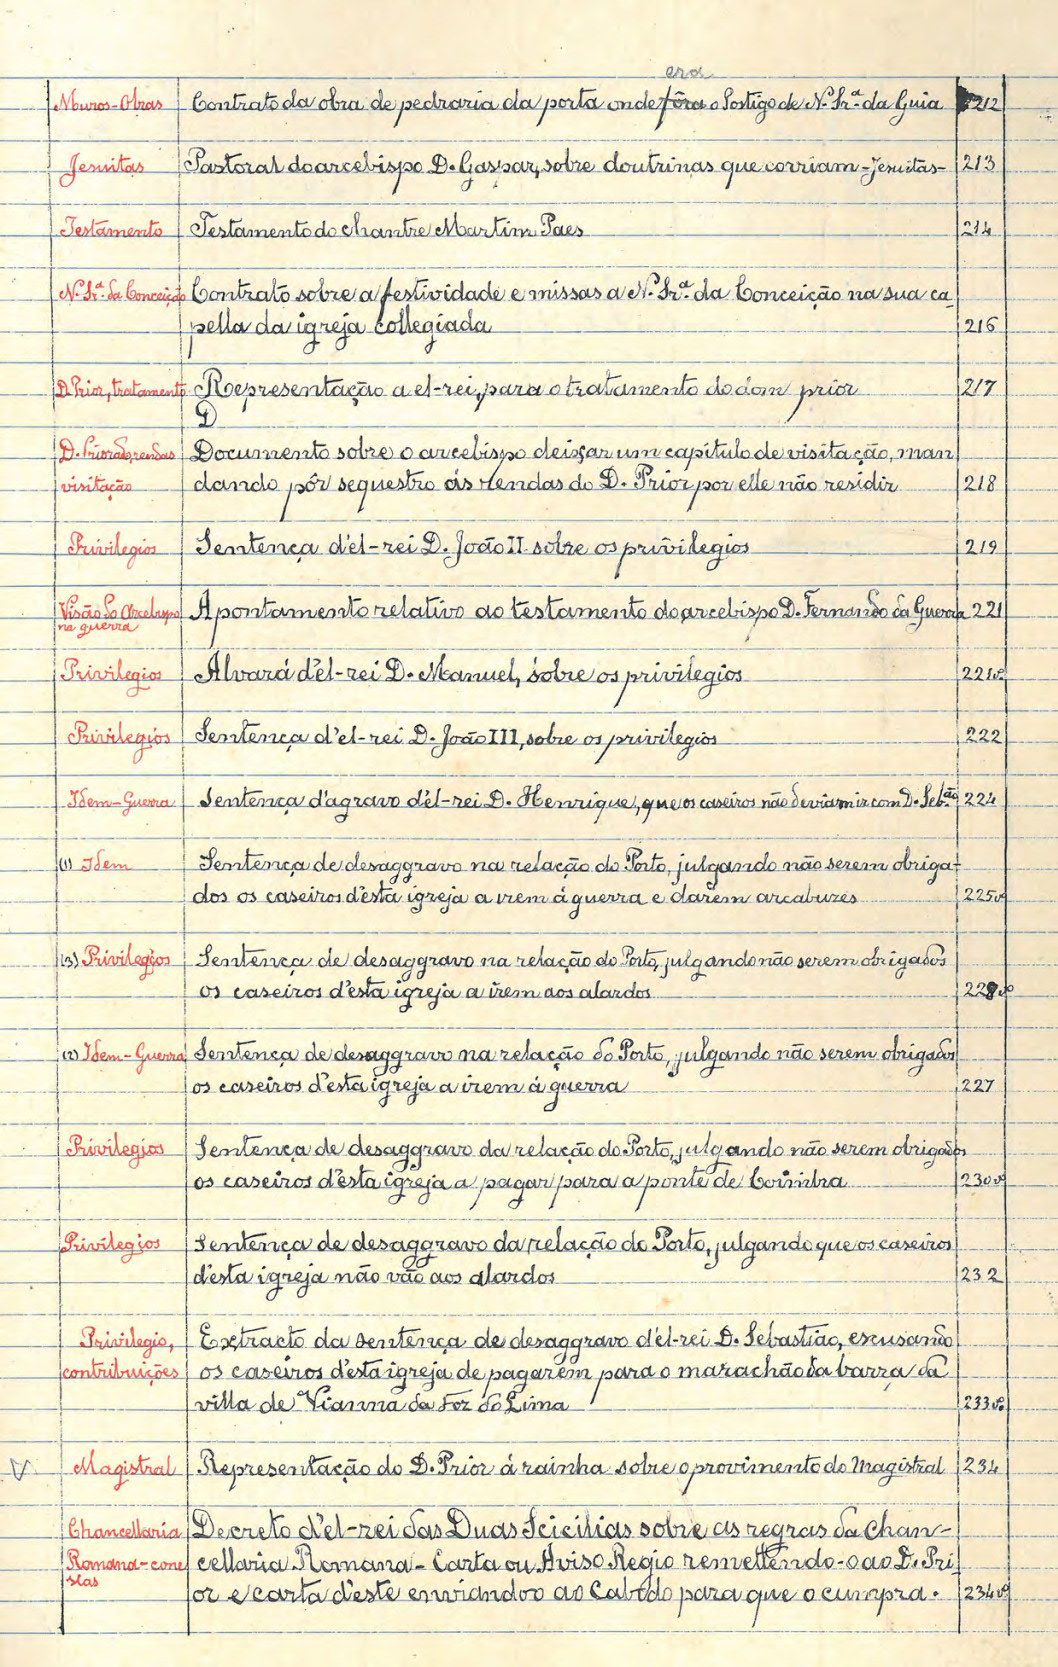 era
Muros-Obras Contrato da obra de pedraria da porta onde fôra o Postigo de N.ª Sr.ª da Guia 212
Jesuitas Pastoral do arcebispo D. Gaspar, sobre doutrinas que corriam - Jesuitas - 213
Testamento Testamento do chantre Martim Paes 214
N.ª Sr.ª da Conceição Contrato sobre a festividade e missas a N.ª Sr.ª da Conceição na sua ca
pella da igreja collegiada 216
D. Prior, tratamento Representação a el-rei, para o tratamento do dom prior 217
D
D. Priorado, rendas Documento sobre o arcebispo deixar um capitulo de visitação, man
visitação dando pôr sequestro ás rendas do D. Prior por elle não residir 218
Privilegios Sentença d'el-rei D. João II sobre os privilegios 219
Visão do Arcebispo Apontamento relativo ao testamento do arcebispo D. Fernando da Guerra 221
na guerra
Privilegios Alvará d'el-rei D. Manuel, sobre os privilegios 221vº
Privilegios Sentença d'el-rei D. João III, sobre os privilegios 222
Idem-Guerra Sentença d'agravo d'el-rei D. Henrique, que os caseiros não deviam ir com D. Seb.ão 224
(1) Idem Sentença de desaggravo na relação do Porto, julgando não serem obriga-
dos os caseiros d'esta igreja a irem á guerra e darem arcabuzes 225vº
(3) Privilegios Sentença de desaggravo na relação do Porto, julgando não serem obrigados
os caseiros d'esta igreja a irem aos alardos 228vº
(2) Idem-Guerra Sentença de desaggravo na relação do Porto, julgando não serem obrigados
os caseiros d'esta igreja a irem á guerra 227
Privilegios Sentença de desaggravo da relação do Porto, julgando não serem obrigados
os caseiros d'esta igreja a pagar para a ponte de Coimbra 230vº
Privilegios Sentença de desaggravo da relação do Porto, julgando que os caseiros
d'esta igreja não vão aos alardos 232
Privilegio, Extracto da sentença de desaggravo d'el-rei D. Sebastião, escusando
contribuições os caseiros d'esta igreja de pagarem para o marachão da barra da
villa de Vianna da Foz do Lima 233vº
V Magistral Representação do D. Prior á rainha sobre o provimento do Magistral 234
Chancellaria Decreto d'el-rei das Duas Scicilias sobre as regras da Chan-
Romana-cone cellaria Romana - Carta ou Aviso Regio remettendo-o ao D. Pri
stas or e carta d'este enviandoo ao Cabido para que o cumpra. 234vº